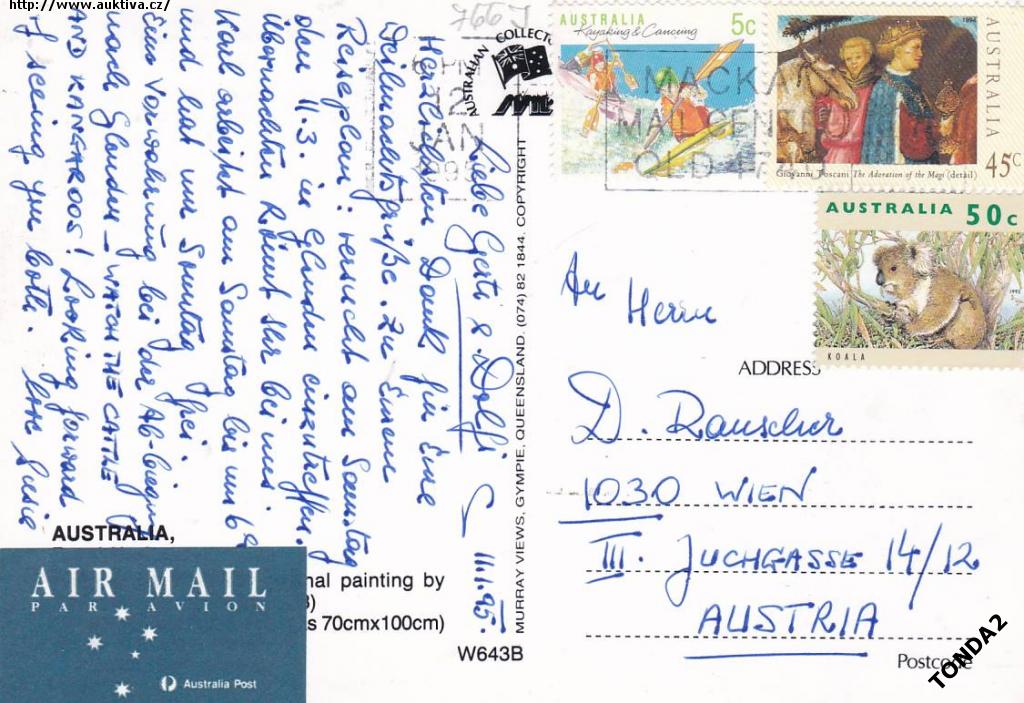 http://www.auktiva.cz/
766 J
AUSTRALIAN COLLECT
6 PM
12
JAN
1995
MACKAY
MAIL CENTRE
QLD 47
AUSTRALIA
5c
Kayaking & Canoeing
1994
AUSTRALIA
45c
Giovanni Toscani The Adoration of the Magi (detail)
AUSTRALIA 50c
KOALA
11.1.95.
Liebe Gerti & Dolfi
Herzlichsten Dank für Eure
Weihnachtsgrüße. Zu Eurem
Reiseplan: versucht am Samstag
den 11.3. in Glenden einzutreffen.
Übernachten könnt Ihr bei uns
Karl arbeitet am Samstag bis um 6
und hat nur Sonntag frei
Eine Vorwahrung bei der Ab-biegung
nach Glenden – WATCH THE CATTLE
AND KANGAROOS! Looking forward
to seeing you both. Love Susie
AUSTRALIA,
nal painting by
s 70cmx100cm)
W643B
AIR MAIL
PAR AVION
Australia Post
MURRAY VIEWS, GYMPIE, QUEENSLAND. (074) 82 1844. COPYRIGHT
An Herrn
ADDRESS
D. Rauscher
1030 WIEN
III. JUCHGASSE 14/12
AUSTRIA
Postcode
TONDA2